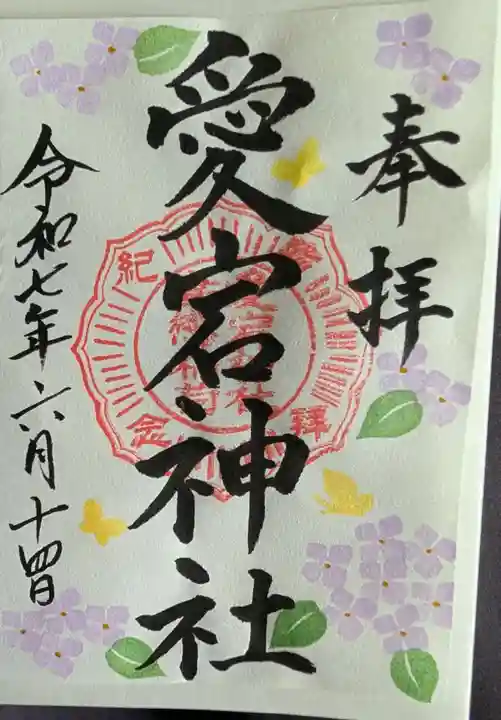 奉拝
愛宕神社
令和七年六月十四日
参拝
紀念